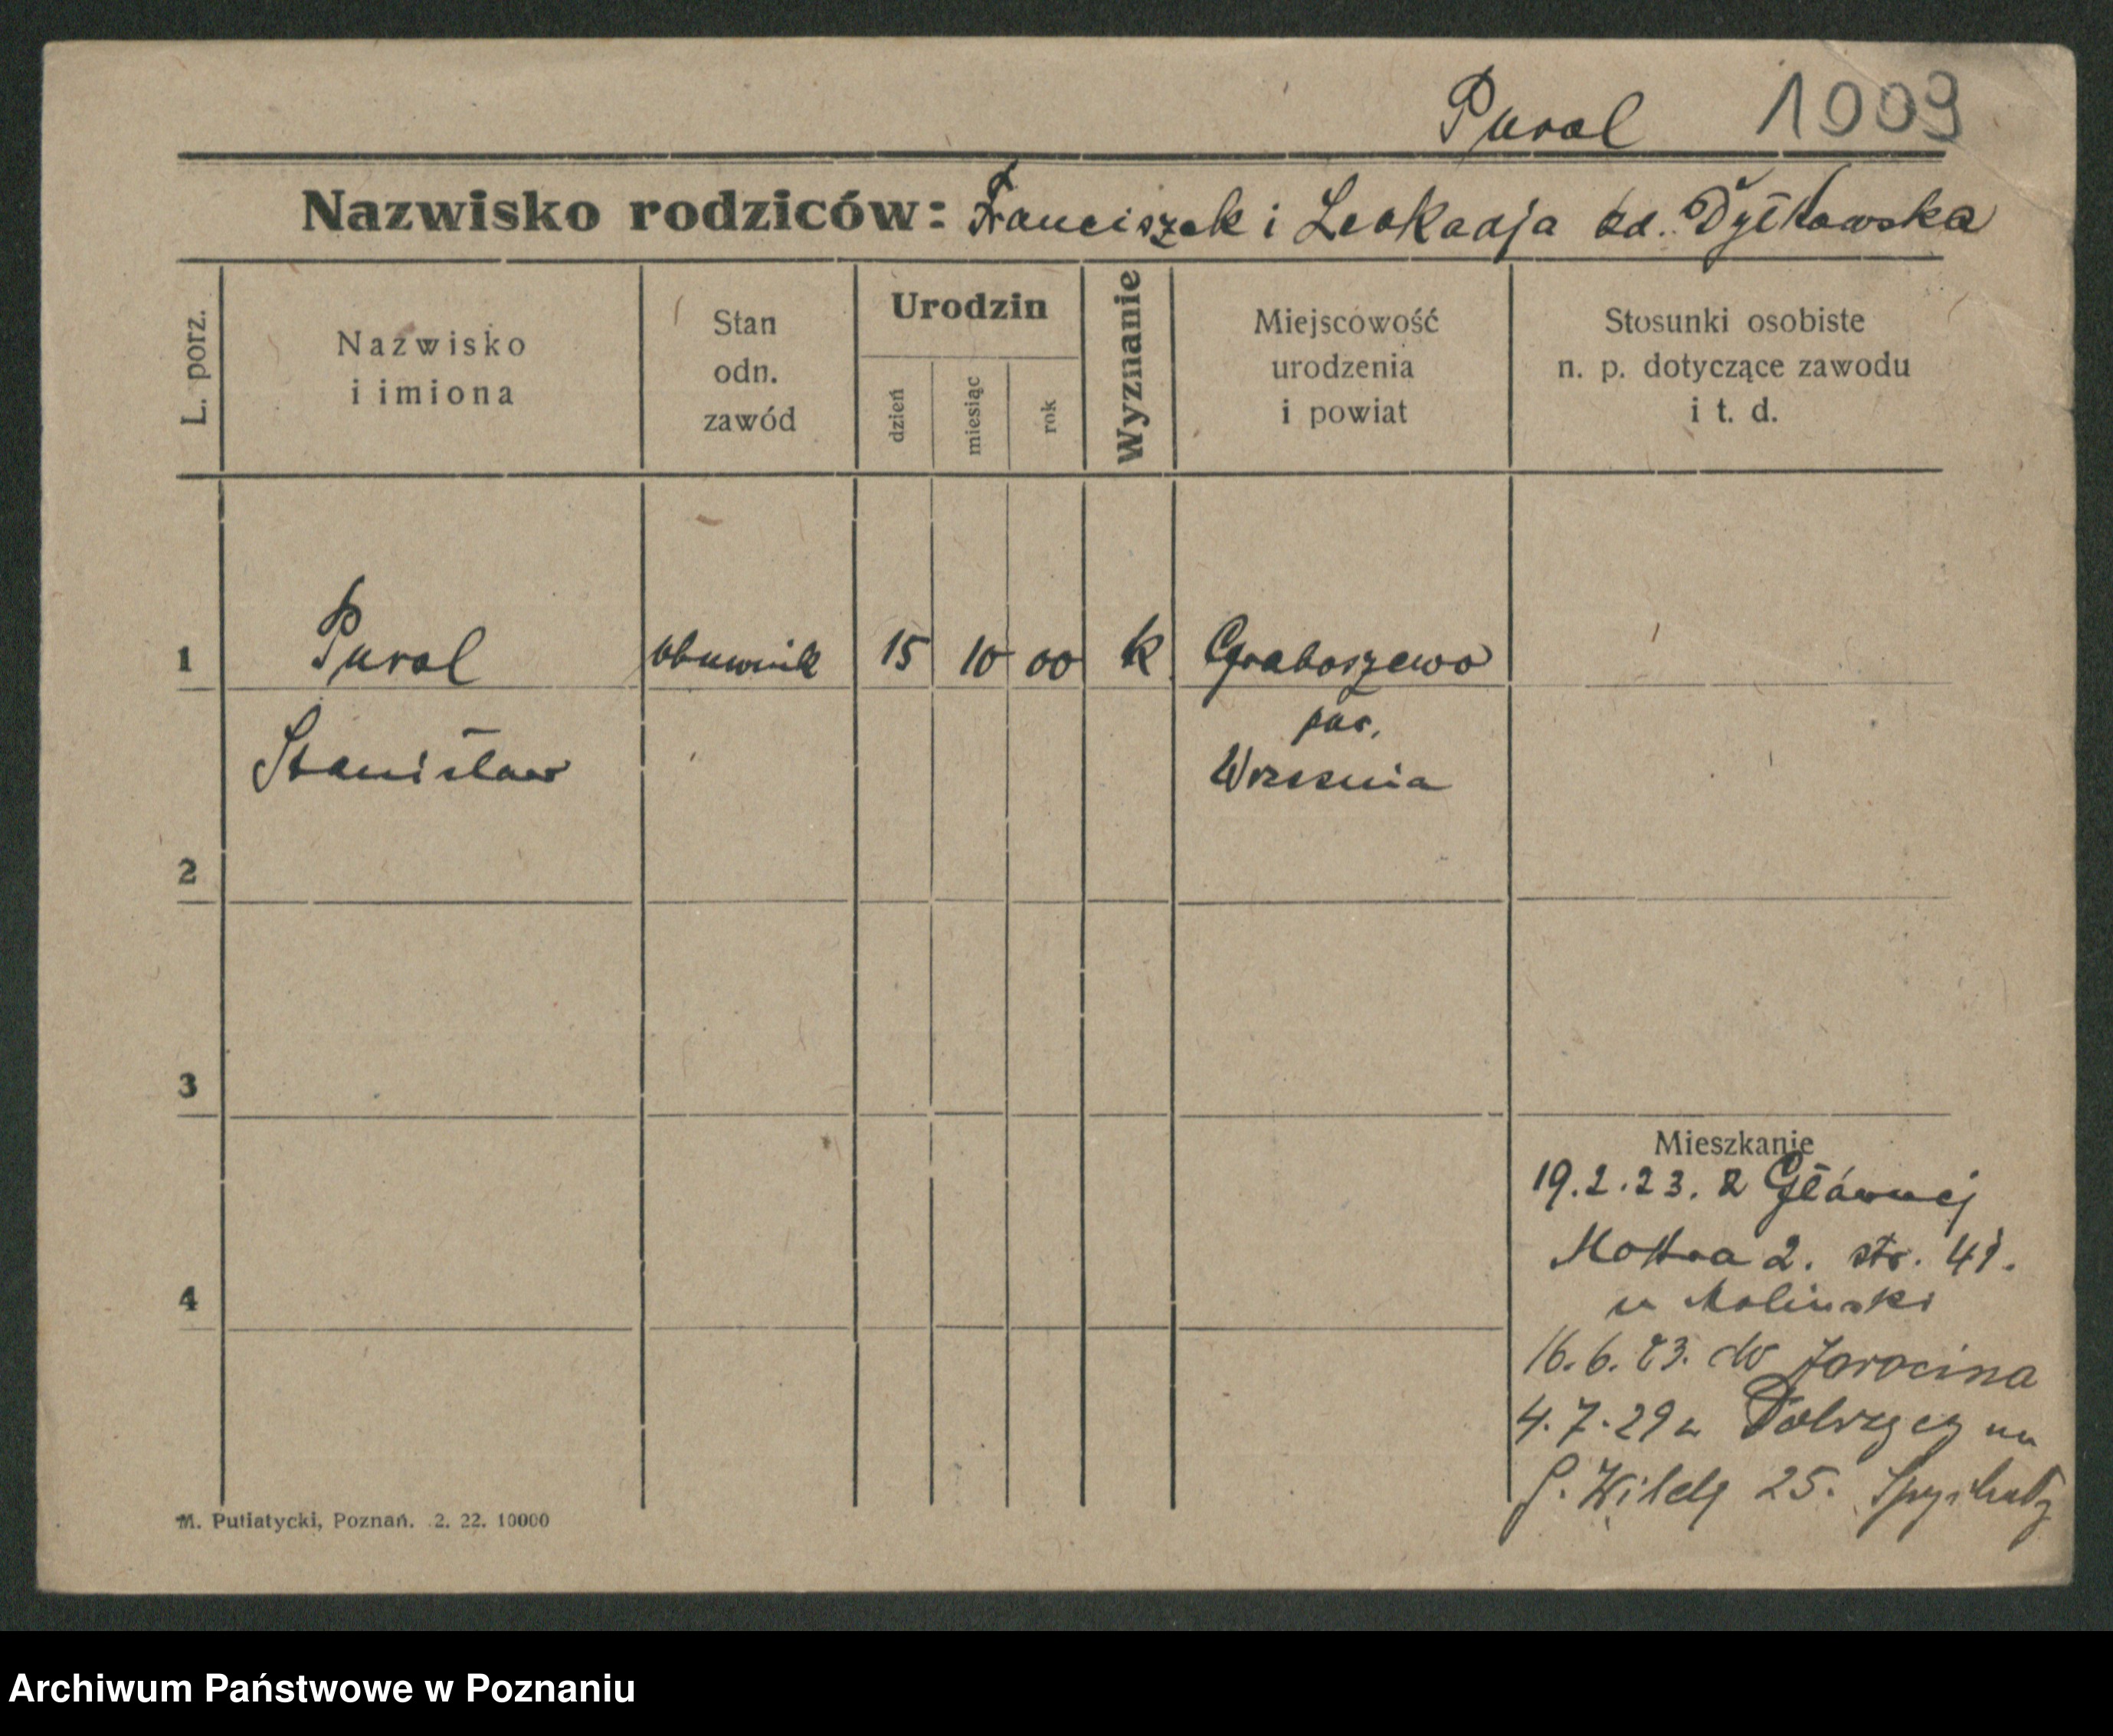 Pural 1009
Nazwisko rodziców: Franciszek i Leokadja
L. porz.
Nazwisko
i imiona
Stan
odn.
zawód
Urodzin
dzień
miesiąc
rok
Wyznanie
Miejscowość
urodzenia
i powiat
Stosunki osobiste
n. p. dotyczące zawodu
i t. d.
1 Pural obuwnik 15 10 00 k Graboszewo
Stanisław
Wrzesnia
2
3
4
Mieszkanie
19.2.23. z Głównej
2. str. 41.
u Molinski
16.6.23. do Jarocina
4.7.29
G. Wildy 25.
M. Putiatycki, Poznań. 2. 22. 10000
Archiwum Państwowe w Poznaniu